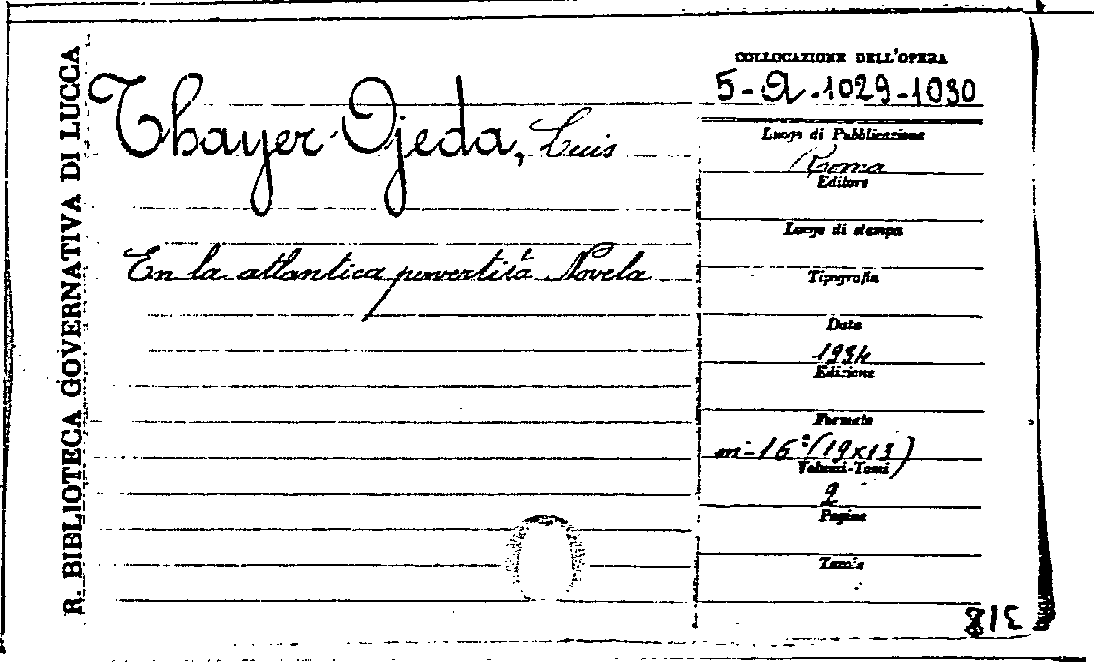 R. BIBLIOTECA GOVERNATIVA DI LUCCA
Thayer-Ojeda, Luis
En la atlantica pervertità Novela
COLLOCAZIONE DELL'OPERA
5-Q-1029-1030
Luogo di Pubblicazione
Roma
Editore
Luogo di stampa
Tipografia
Data
1934
Edizione
Formato
in-16°(19x13)
Volumi-Tomi
2
Pagine
Tavole
318